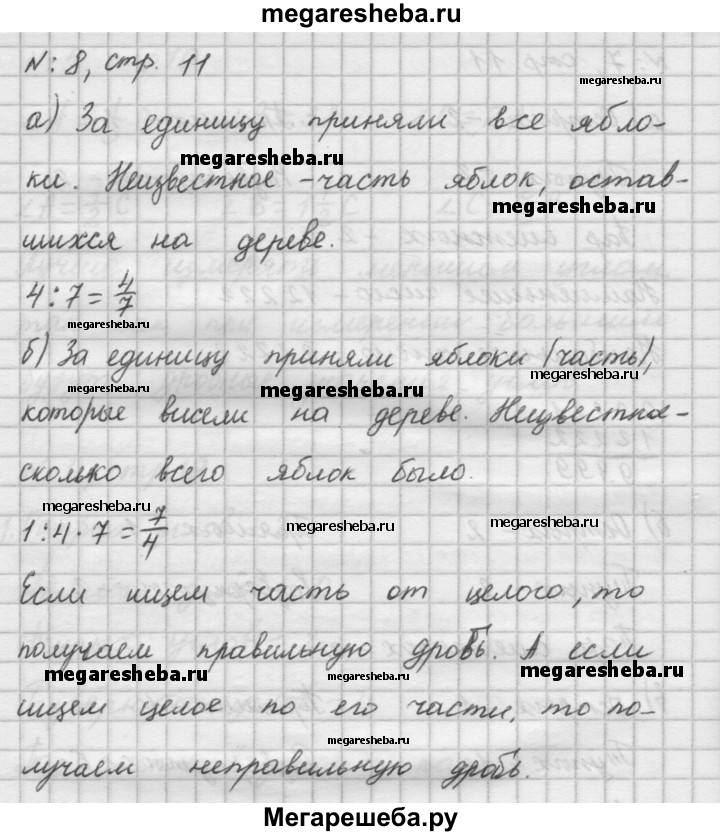 megaresheba.ru
№: 8, стр. 11
megaresheba.ru
а) За единицу приняли все ябло-
megaresheba.ru
ки. Неизвестное - часть яблок, остав-
megaresheba.ru
шихся на дереве.
4 : 7 = 4/7
megaresheba.ru
б) За единицу приняли яблоки (часть),
megaresheba.ru
megaresheba.ru megaresheba.ru
которые висели на дереве. Неизвестное -
сколько всего яблок было.
megaresheba.ru megaresheba.ru megaresheba.ru
1 : 4 · 7 = 7/4
Если ищем часть от целого, то
получаем правильную дробь. А если
megaresheba.ru megaresheba.ru megaresheba.ru
ищем целое по его части, то по-
megaresheba.ru
лучаем неправильную дробь.
megaresheba.ru
Мегарешеба.ру